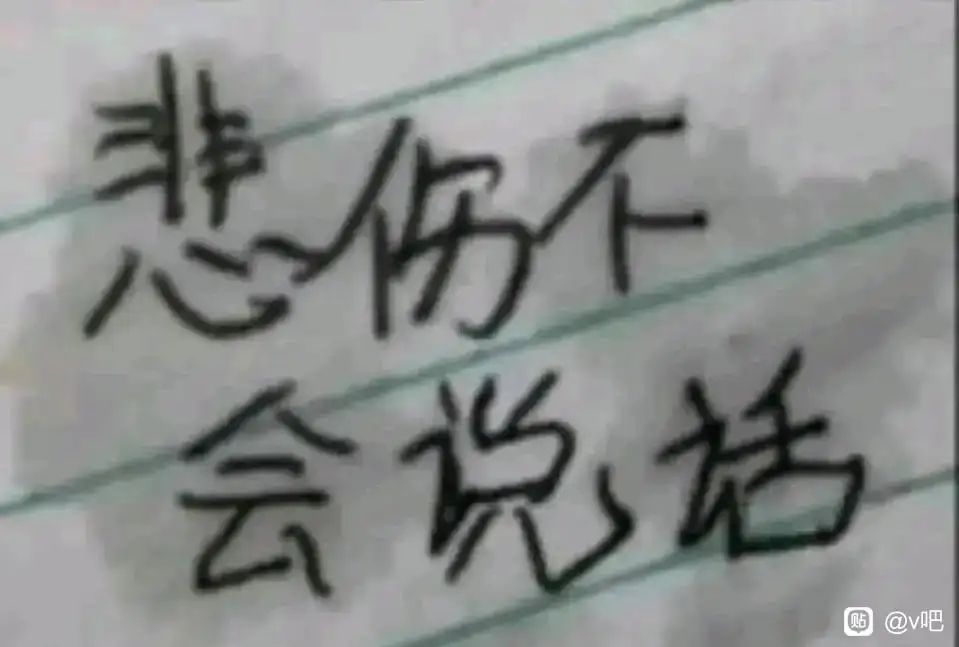 悲伤不
会说话
贴 @v吧